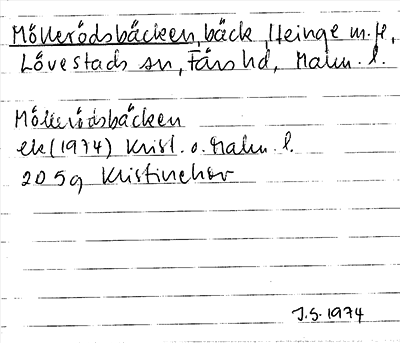 Möllerödsbäcken, bäck, Heinge m.fl.
Lövestads sn, Färs hd, Malm. l.
Möllerödsbäcken
ek (1974) Krist. o. Malm. l.
2D 5g Kristinehov
J.S. 1974